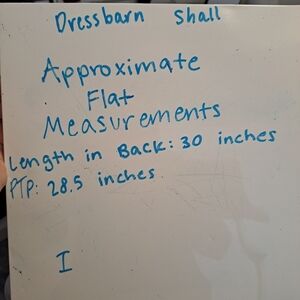 Dressbarn Shall
Approximate
Flat
Measurements
Length in Back: 30 inches
PTP: 28.5 inches
I